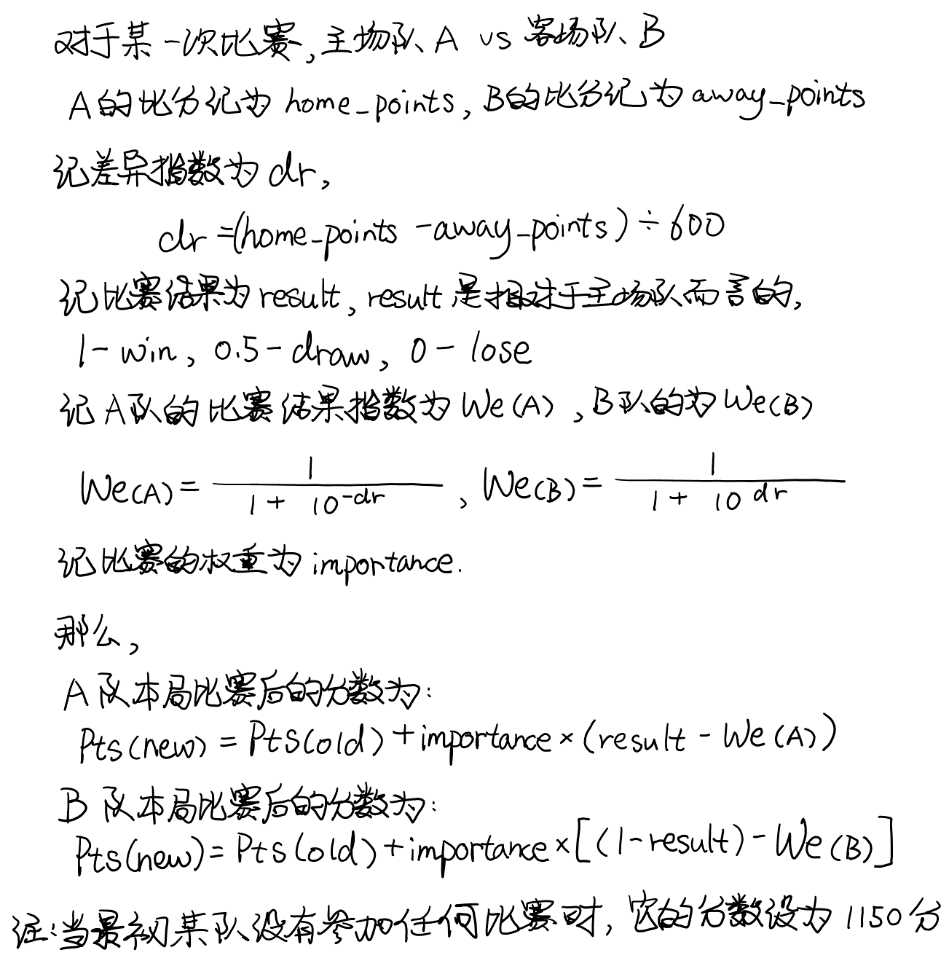 对于某一次比赛,主场队A vs 客场队B
A的比分记为 home_points, B的比分记为away_points
记差异指数为dr,
dr=(home_points -away_points)÷600
记比赛结果为result, result是相对于主场队而言的,
1-win, 0.5-draw, 0-lose
记A队的比赛结果指数为We(A),B队的为We(B)
We(A)= 1 / (1 + 10^-dr) , We(B)= 1 / (1 + 10^dr)
记比赛的权重为importance.
那么,
A队本局比赛后的分数为:
Pts(new) = Pts(old)+importance×(result-We(A))
B队本局比赛后的分数为:
Pts(new)=Pts(old)+importance×[(1-result)-We(B)]
注:当最初某队没有参加任何比赛时,它的分数设为1150分